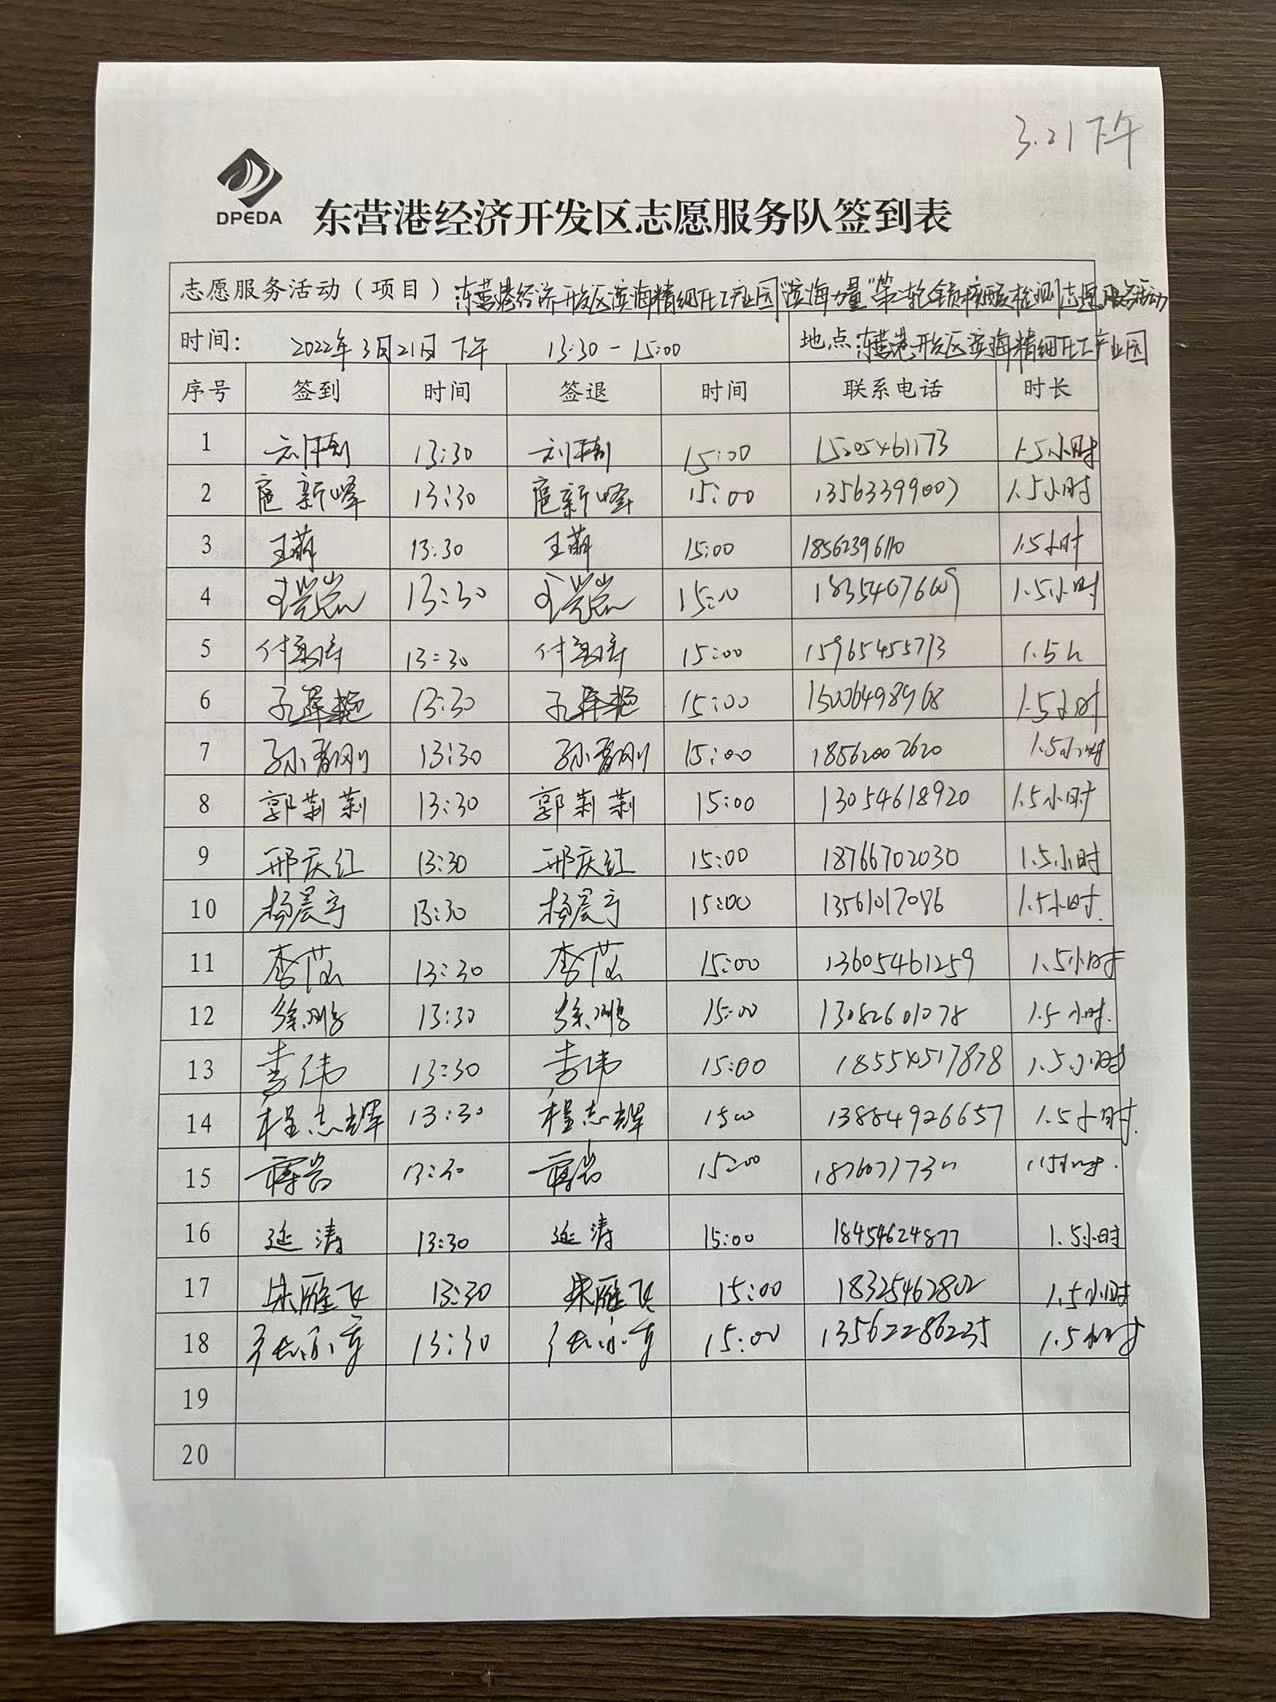 3.21下午
DPEDA
东营港经济开发区志愿服务队签到表
志愿服务活动(项目) 东营港经济开发区滨海精细化工产业园"滨海力量"第一轮全员核酸检测志愿服务活动
时间: 2022年3月21日下午 13:30-15:00 地点 东营港开发区滨海精细化工产业园
序号 签到 时间 签退 时间 联系电话 时长
1 13:30 15:00 15205461173 1.5小时
2 扈新峰 13:30 扈新峰 15:00 13563399007 1.5小时
3 王萌 13:30 王萌 15:00 1.5小时
4 13:30 15:00 18354607609 1.5小时
5 13:30 15:00 15965455773 1.5h
6 13:30 15:00 15006498968 1.5小时
7 13:30 15:00 18562002620 1.5小时
8 郭莉莉 13:30 郭莉莉 15:00 13054618920 1.5小时
9 邢庆红 13:30 邢庆红 15:00 18766702030 1.5小时
10 杨晨宇 13:30 杨晨宇 15:00 13561017086 1.5小时.
11 13:30 15:00 13605461259 1.5小时
12 13:30 15:00 13082601078 1.5小时.
13 李伟 13:30 李伟 15:00 18554517878 1.5小时
14 程志辉 13:30 程志辉 1500 13884926657 1.5小时.
15 13:30 15:00 1.5小时.
16 延涛 13:30 延涛 15:00 18454624877 1.5小时
17 朱雁飞 13:30 朱雁飞 15:00 18325462802 1.5小时
18 13:30 15:00 13562286235 1.5小时
19
20